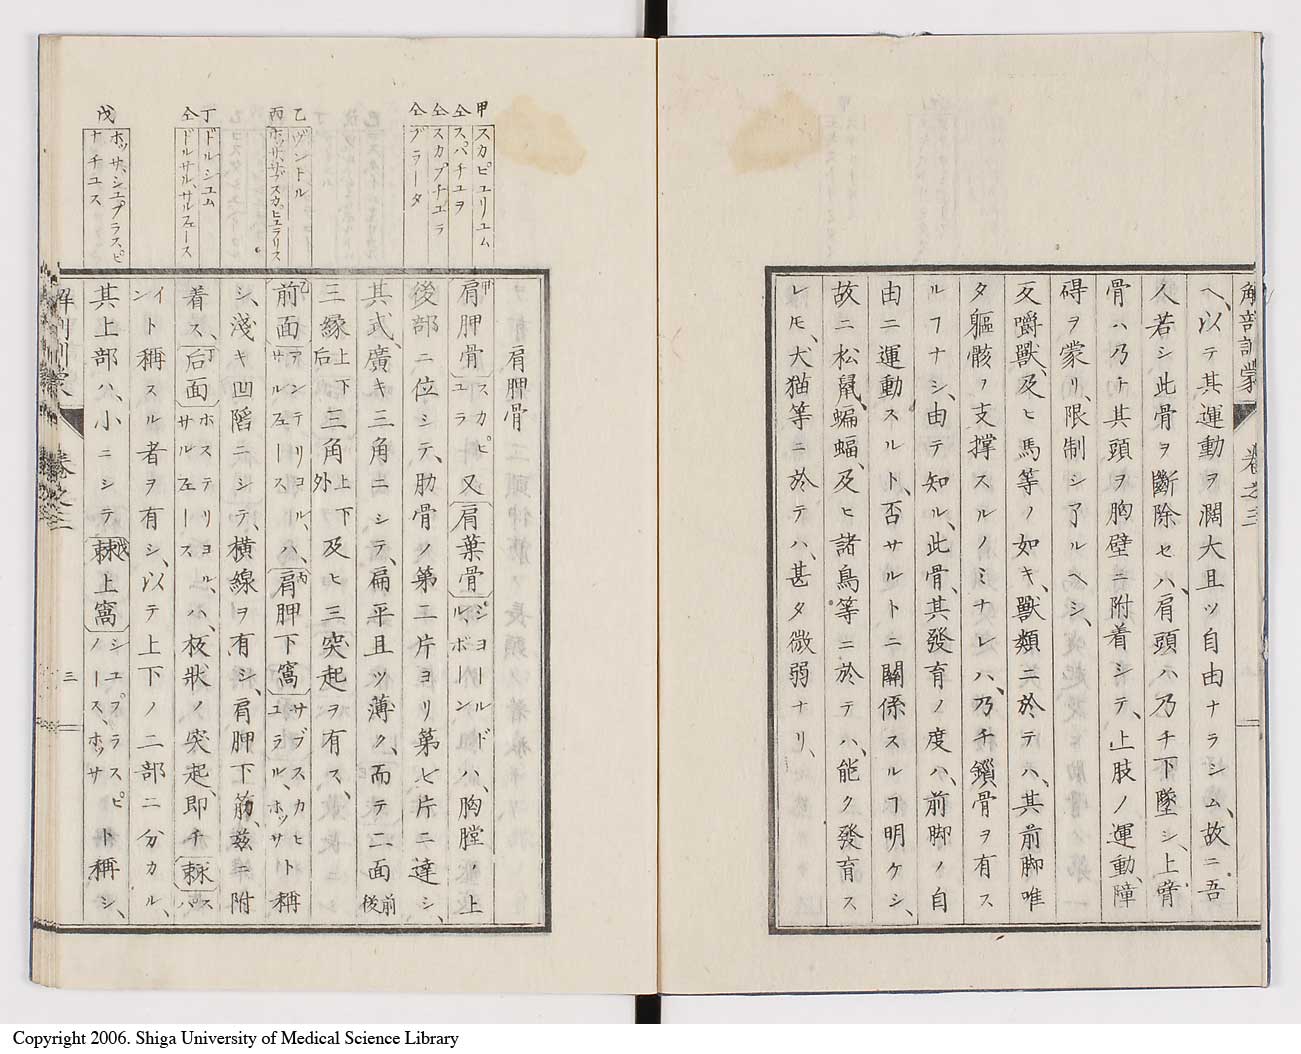 解剖訓蒙 卷之三
ヘ、以テ其運動ヲ濶大且ツ自由ナラシム、故ニ吾
人若シ此骨ヲ斷除セハ、肩頭ハ乃チ下墜シ、上膂
骨ハ乃チ其頭ヲ胸壁ニ附着シテ、上肢ノ運動、障
碍ヲ蒙リ、限制シ了ルヘシ、
反嚼獸、及ヒ馬等ノ如キ、獸類ニ於テハ、其前脚唯
タ軀骸ノ支撑スルノミナレハ、乃チ鎖骨ヲ有ス
ルフナシ、由テ知ル、此骨、其發育ノ度ハ、前脚ノ自
由ニ運動スルト、否サルトニ關係スルヿ明ケシ、
故ニ松鼠、蝙蝠、及ヒ諸鳥等ニ於テハ、能ク發育ス
レモ、犬猫等ニ於テハ、甚タ微弱ナリ、
甲 スカピユリユム
仝 スパチユヲ
仝 スカプチエラ
仝 ブラータ
乙 ヴントル
丙 ホッサ、サブスカピユラリス
丁 ドルシユム
仝 ドルサル、サルフェース
戊 ホッサ、シユプラスピ
ナチユス
肩胛骨
甲 肩胛骨 スカピユラ 又 肩葉骨 ショールドル、ボーン ハ、胸膛ノ上
後部ニ位シテ、肋骨ノ第二片ヨリ第七片ニ達シ、
其式、廣キ三角ニシテ、扁平且ツ薄ク、而テ二面 前後
三緣 上下后 三角 上下外 及ヒ三突起ヲ有ス、
乙 前面 アンテリヨル、サルフェース ハ、丙 肩胛下窩 サブスカヒユラル、ホッサ ト稱
シ、淺キ凹陷ニシテ、橫線ヲ有シ、肩胛下筋、茲ニ附
着ス、丁 后面 ホステリヨル、サルフェース ハ、板狀ノ突起、即チ 棘 スパ
イン ト稱スル者ヲ有シ、以テ上下ノ二部ニ分カル、
其上部ハ、小ニシテ 戊 棘上窩 シユプラスピノース、ホッサ ト稱シ、
解剖訓蒙 卷之三
三
Copyright 2006. Shiga University of Medical Science Library